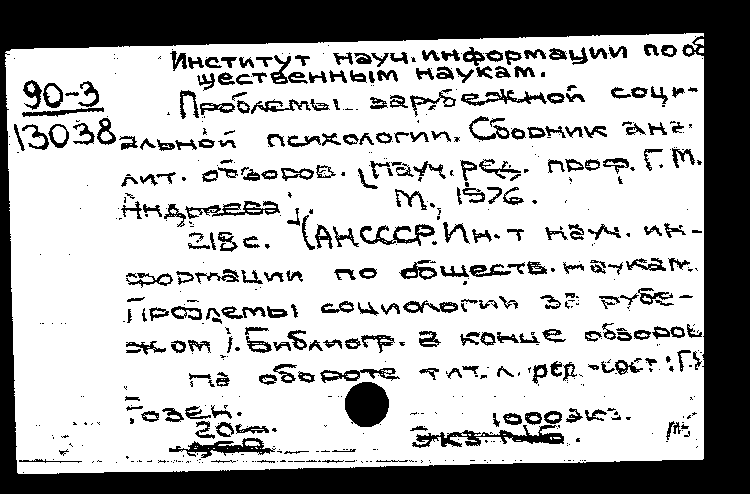 Институт науч. информации по об
щественным наукам.
90-3
13038
Проблемы зарубежной соци-
альной психологии. Сборник ана-
лит. обзоров. [Науч. ред. проф. Г. М.
Андреева]. М., 1976.
218 с. (АН СССР. Ин-т науч. ин-
формации по обществ. наукам.
Проблемы социологии за рубе-
жом). Библиогр. в конце обзоров
На обороте тит. л. ред.-сост.: Г.
Гозен.
20см. 1000 экз.
экз. №